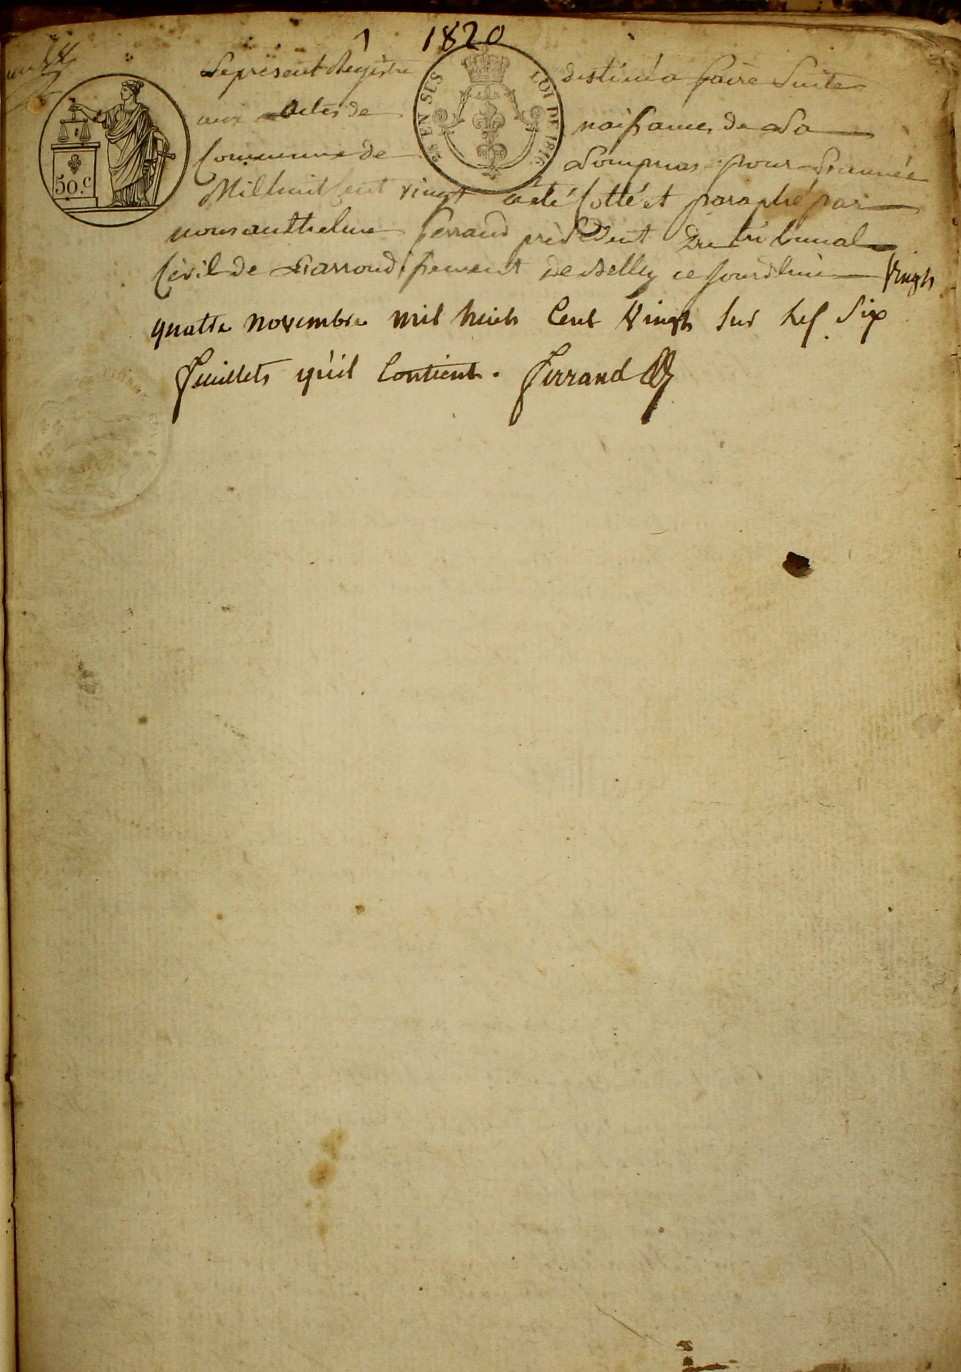 1 1820
50.c
28 EN SUS LOI DE 1816
Le présent Registre destiné a faire Suite
aux Actes de naissances de La
Commune de Lompnas pour L'année
Mil huit Cent vingt a été Cotté et paraphé par
nous anthelme ferrand président du tribunal
Civil de L'arrondissement de Belley ce jourd'hui Vingt
quatre novembre mil huit Cent Vingt Sur les Six
feuillets qu'il Contient. Ferrand